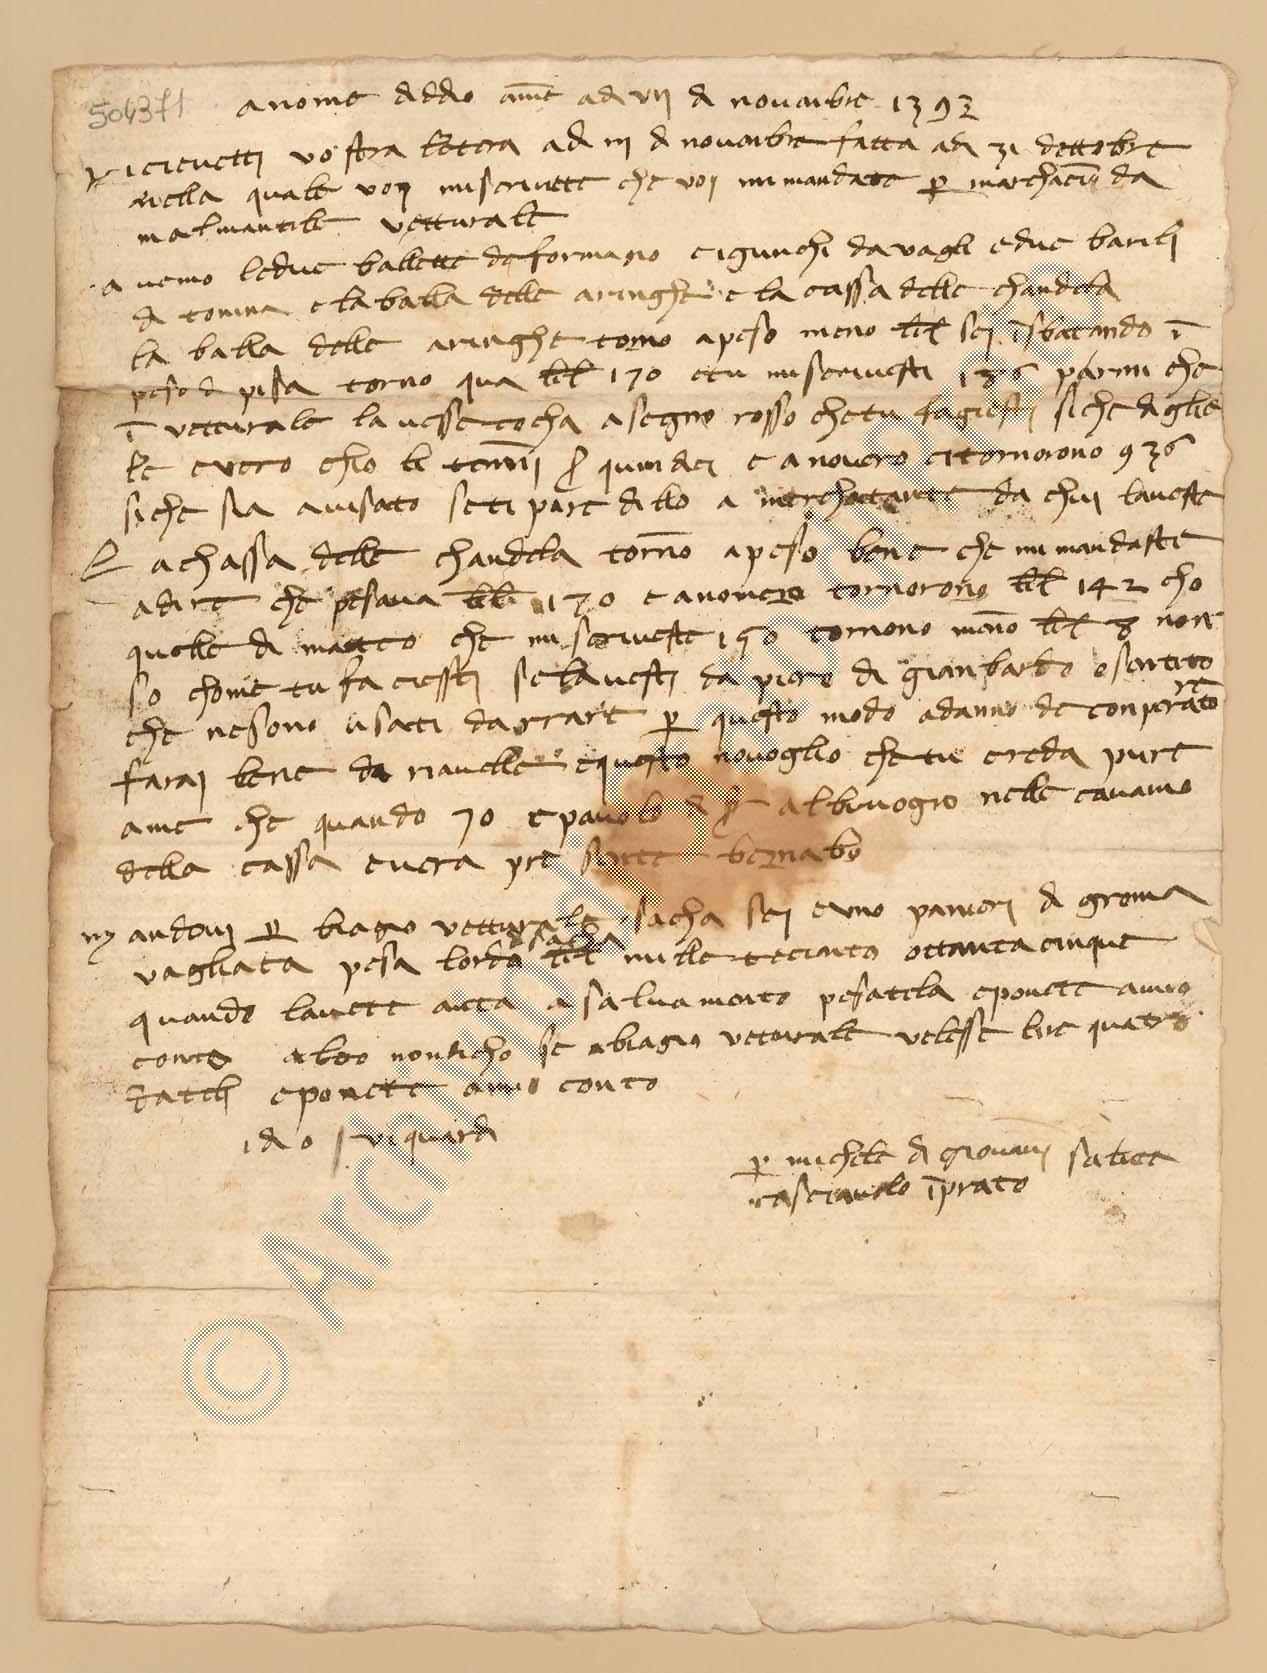 504371
a nome di dio ame adi vii di novenbre 1393
Ricievetti vostra lettera adi iii di novenbre fatta adi 31 dottobre
nella quale voi mi scrivete che voi mi mandate p marchacio da
malmantile vetturale
avemo le due ballette di formagio e i giunchi da vagli e due barili
di tonina e la balla delle aringhe e la cassa delle chandela
la balla delle aringhe torno a peso meno lbl sei isbatendo i
peso di pisa torno qua lbl 170 e tu mi scrivesti 186 parmi che
i vetturale lavesse tocha a segno rosso che tu facesti siche digliele
e vero chio le tenni quindici e a novero ci tornorono 936
siche sia avisato se ti pare dillo a merchattante da chui laveste
La chassa delle chandela torno a peso bene che mi mandaste
a dire che pesava lbl 170 e a novero tornorono lbl 142 cho
quelle di matteo che mi scriveste 150 tornono meno lbl 8 non
so chome tu facessti se lavesti da piero di gianbardo o sentito
che ne sono usati darrare p questo modo a danno de conperatore
farai bene da riavelle e questo no voglio che tu creda pure
a me che quando io e pavolo albivogio nelle cavamo
della cassa e vera presente bernabo
Mandovi p biagio vetturale sacha sei e uno panieri di groma
vagliata pesa lordo sacha lbl mille trecento ottanta cinque
quando lavete auta a salvamento pesatela e ponete a mio
conto altro non ti cho se a biagio vetturale volesse lire quatro
datelli e ponete a mio conto
idio vi guardi
p michele di giovanni saluta
casciaiuolo i prato
© Archivio di Stato di Prato